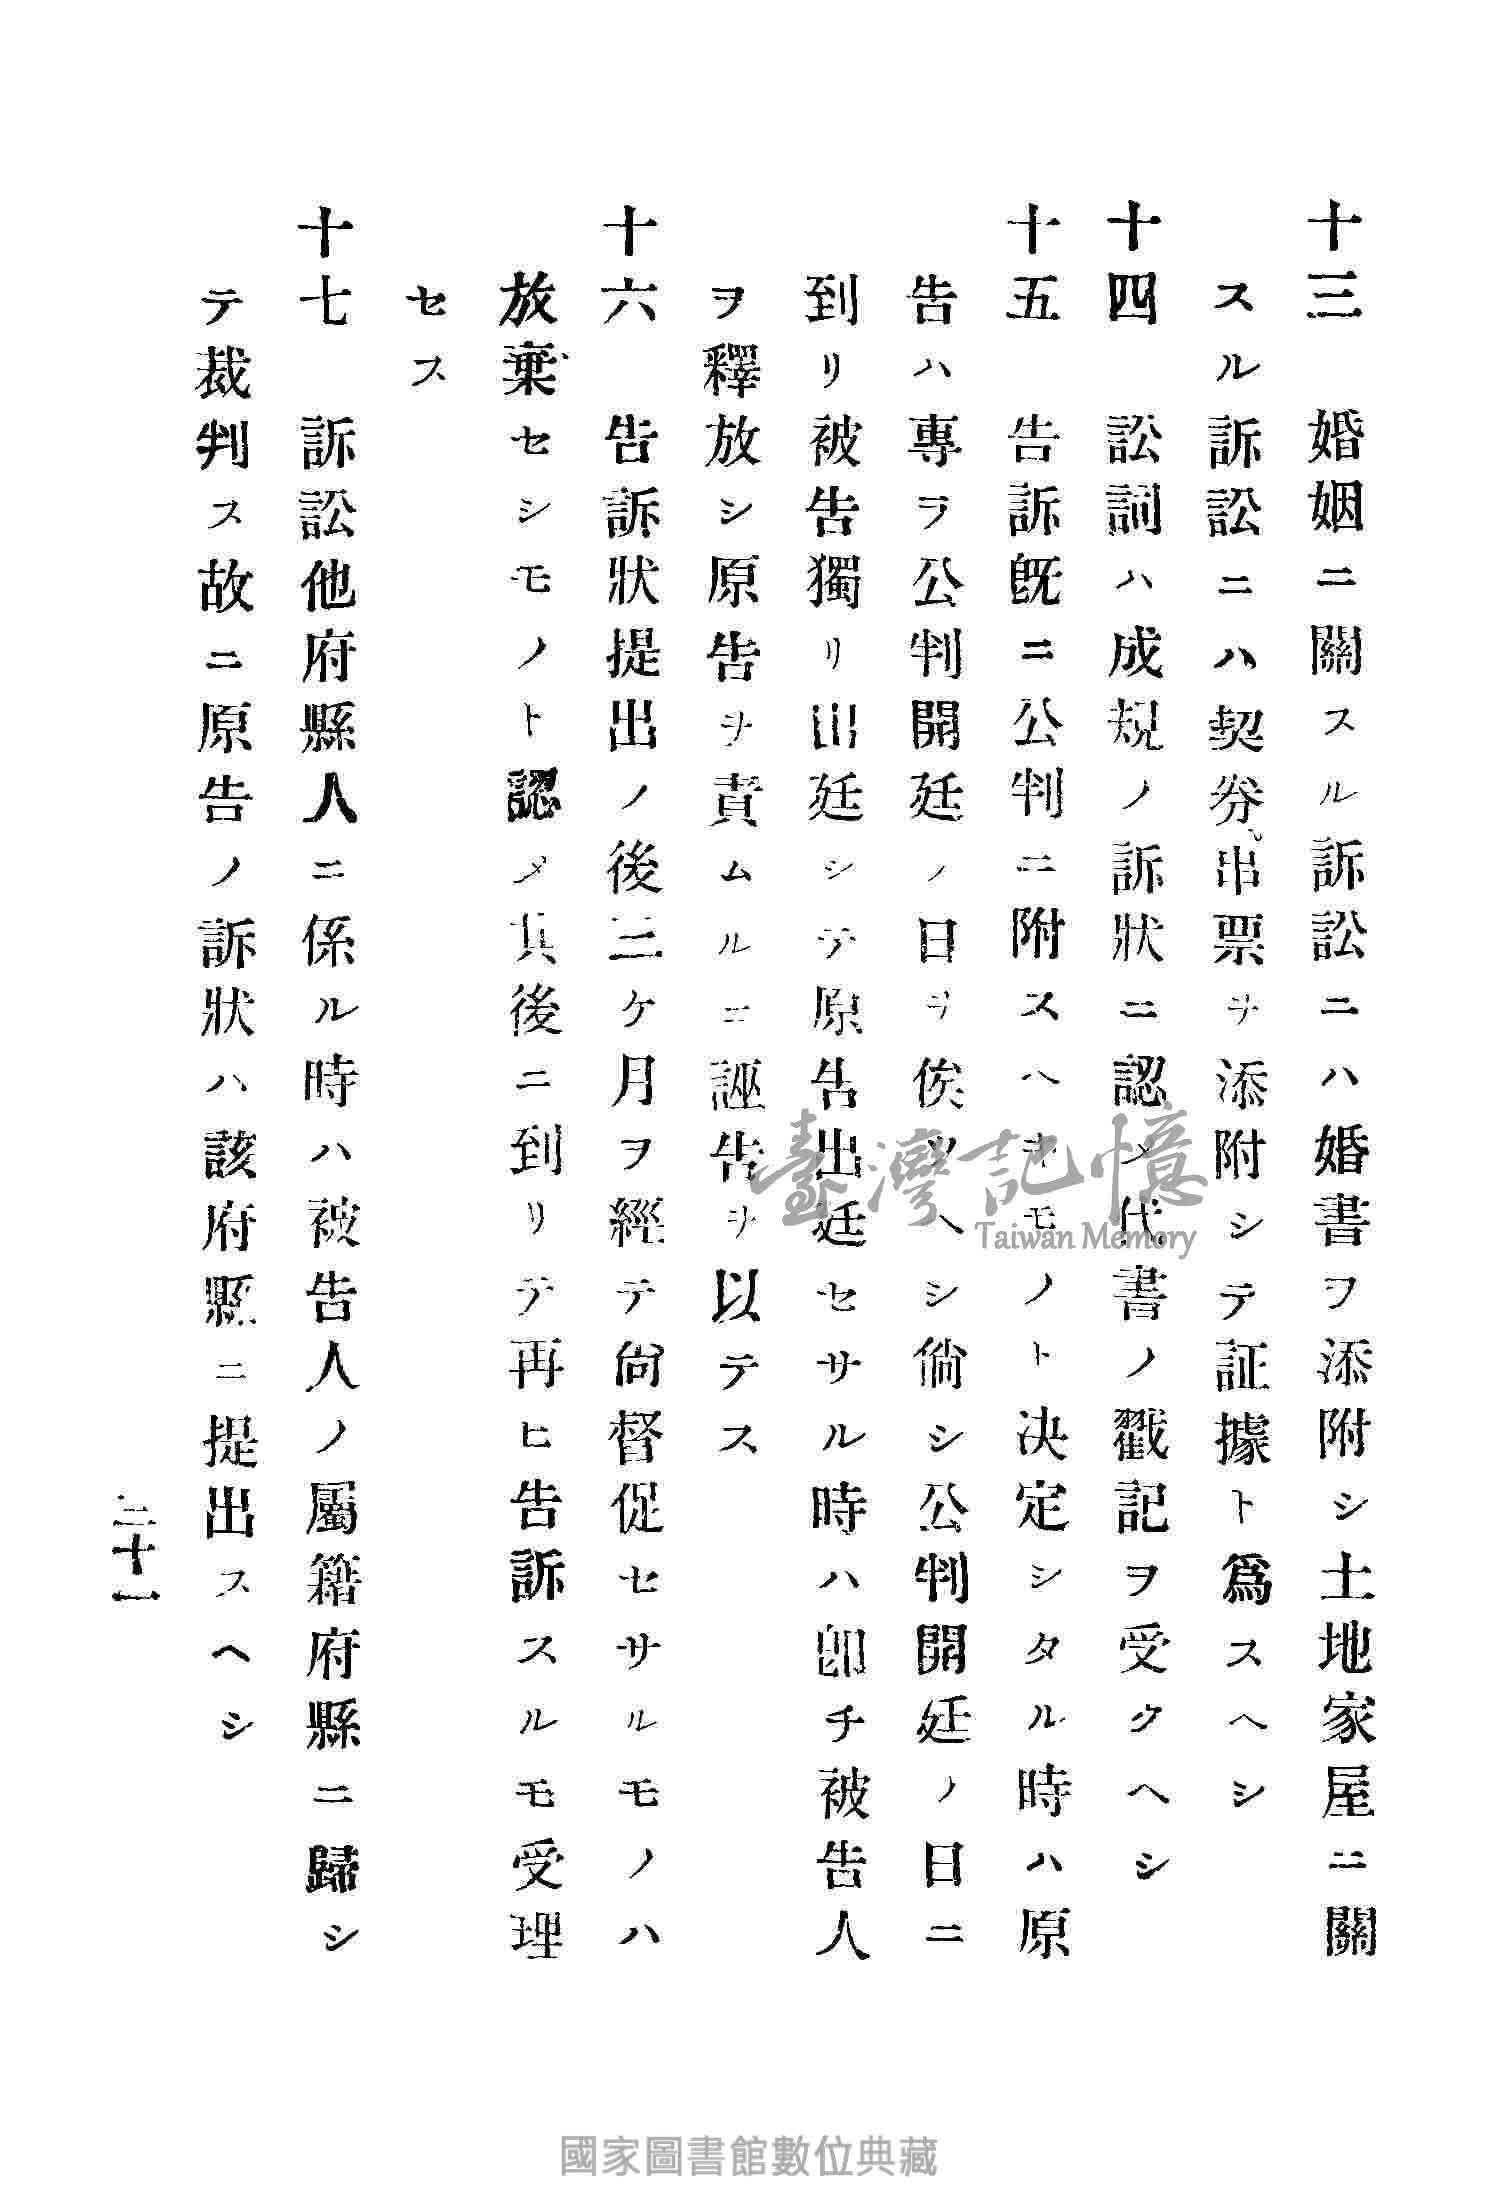 十三　婚姻ニ關スル訴訟ニハ婚書ヲ添附シ土地家屋ニ關
スル訴訟ニハ契券、串票ヲ添附シテ証據ト爲スヘシ
十四　訟詞ハ成規ノ訴狀ニ認メ代書ノ戳記ヲ受クヘシ
十五　告訴既ニ公判ニ附スヘキモノト决定シタル時ハ原
告ハ專ヲ公判開廷ノ日ヲ俟ツヘシ倘シ公判開廷ノ日ニ
到リ被告獨リ出廷シテ原告出廷セサル時ハ卽チ被告人
ヲ釋放シ原告ヲ責ムルニ誣告ヲ以テス
十六　告訴狀提出ノ後三ケ月ヲ經テ尙督促セサルモノハ
放棄セシモノト認メ其後ニ到リテ再ヒ告訴スルモ受理
セス
十七　訴訟他府縣人ニ係ル時ハ被告人ノ屬籍府縣ニ歸シ
テ裁判ス故ニ原告ノ訴狀ハ該府縣ニ提出スヘシ
二十一
臺灣記憶
Taiwan Memory
國家圖書館數位典藏